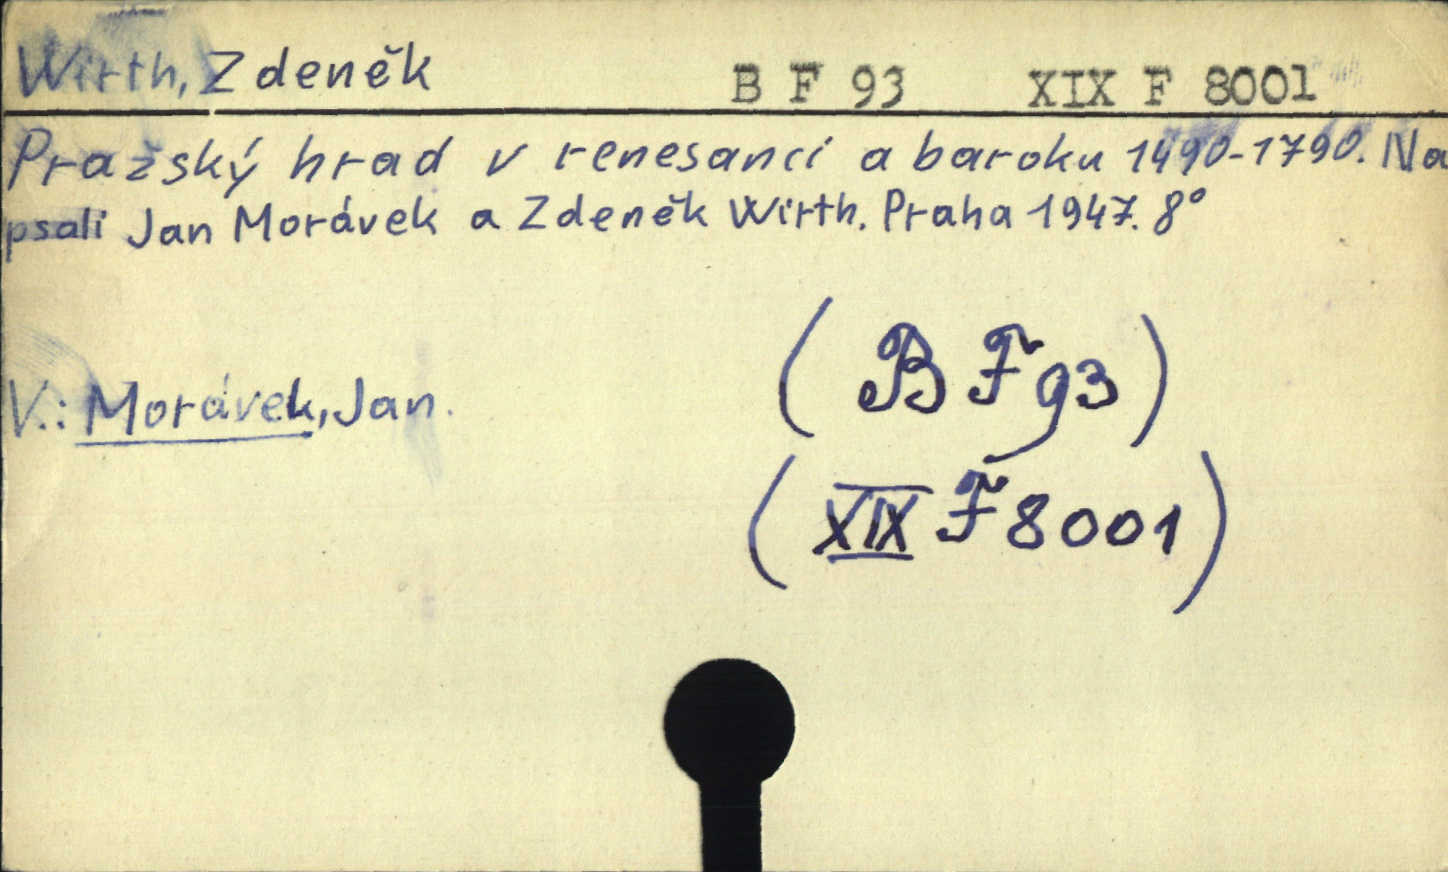 Wirth, Zdeněk B F 93 XIX F 8001
Pražský hrad v renesanci a baroku 1490-1790. Na
psali Jan Morávek a Zdeněk Wirth. Praha 1947. 8°
(B F 93)
V.: Morávek, Jan.
(XIX F 8001)